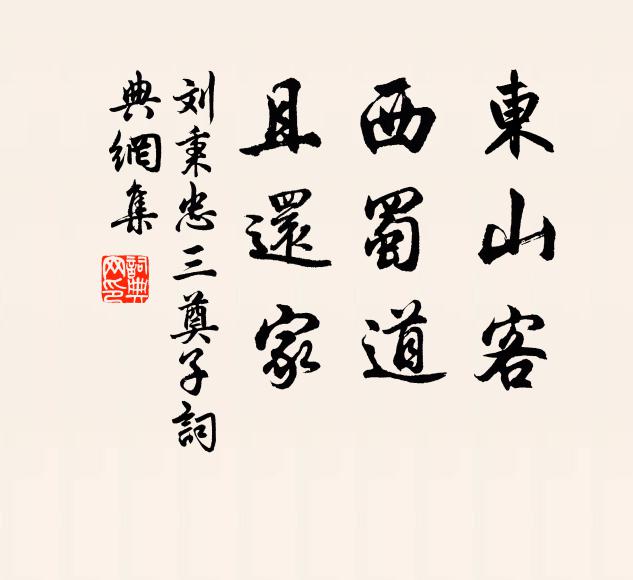 東山客
西蜀道
且還家
刘秉忠三奠子詞
典網集
詞典网印